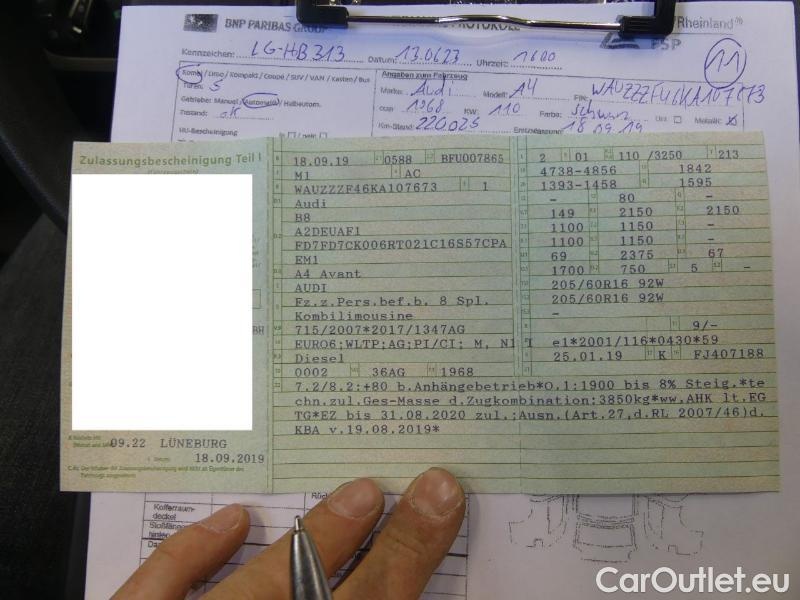 BNP PARIBAS GROUP
Rheinland®
PSP
Kennzeichen: LG-HB 313 Datum: 13.06.23 Uhrzeit: 1600
11
Kombi / Limo / Kompakt / Coupé / SUV / VAN / Kasten / Bus
Türen: 5
Getriebe: Manuell / Automatik / Halbautom.
Zustand: OK
HU-Bescheinigung
Angaben zum Fahrzeug
Marke: Audi Modell: A4 FIN:
1968 KW: 110 Farbe: schwarz Uni Metallic
Km-Stand: 220025 Erstzulassung: 18.09.19
Zulassungsbescheinigung Teil I
(Fahrzeugschein)
BH
09.22 LÜNEBURG
18.09.2019
18.09.19 0588 BFU007865
M1 AC
WAUZZZF46KA107673 1
Audi
B8
A2DEUAF1
FD7FD7CK006RT021C16S57CPA
EM1
A4 Avant
AUDI
Fz.z.Pers.bef.b. 8 Spl.
Kombilimousine
715/2007*2017/1347AG
EURO6;WLTP;AG;PI/CI; M, N1 I
Diesel
0002 36AG 1968
2 01 110 /3250 213
4738-4856 1842
1393-1458 1595
- 80 -
149 2150 2150
1100 1150 -
1100 1150 -
69 2375 67
1700 750 5 -
205/60R16 92W
205/60R16 92W
-
9/-
e1*2001/116*0430*59
25.01.19 K FJ407188
7.2/8.2:+80 b.Anhängebetrieb*O.1:1900 bis 8% Steig.*te
chn.zul.Ges-Masse d.Zugkombination:3850kg*ww.AHK lt.EG
TG*EZ bis 31.08.2020 zul.;Ausn.(Art.27,d.RL 2007/46)d.
KBA v.19.08.2019*
Kofferraum-
deckel
Rück
CarOutlet.eu